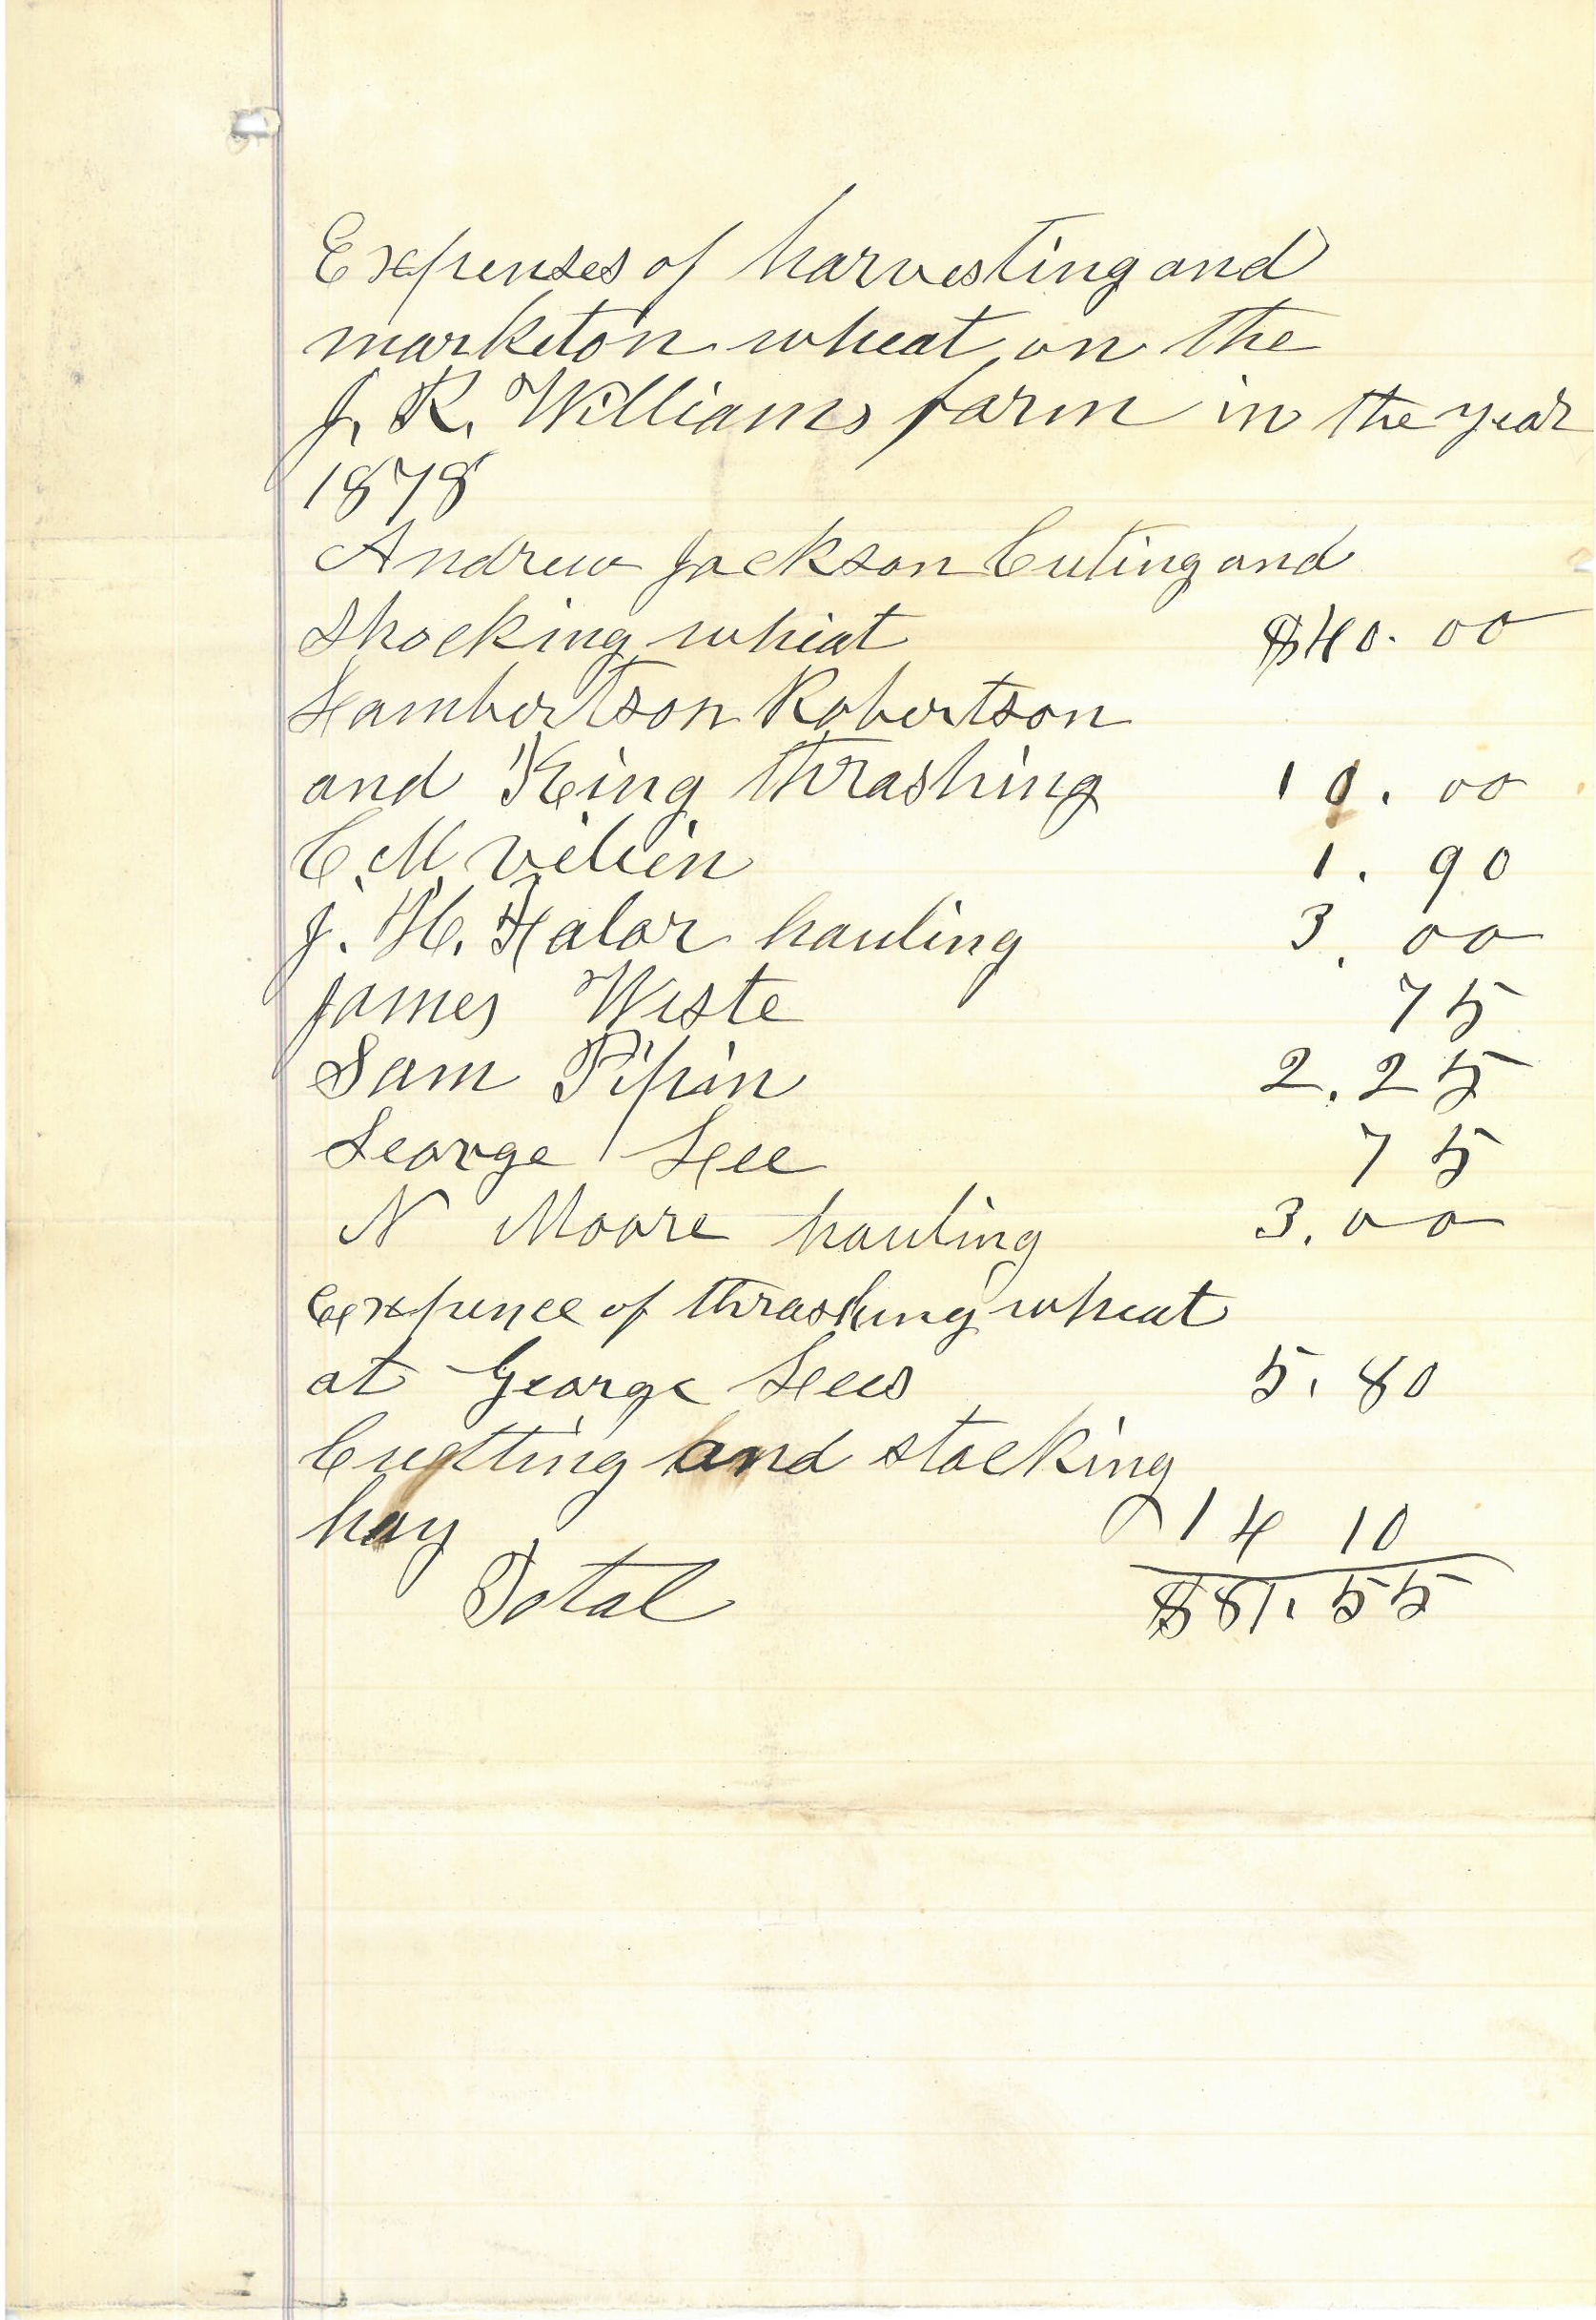 Expenses of harvesting and
marketon wheat on the
J. R. Williams farm in the year
1878
Andrew Jackson Cuting and
Shocking wheat $40.00
Lambertson Robertson
and King thrashing 10.00
C. M. 1.90
J. H. hauling 3.00
James Weste 75
Sam Pipin 2.25
George Lee 75
N Moore hauling 3.00
expence of thrashing wheat
at George Lees 5.80
Cutting and stacking
hay 14 10
Total $81.55